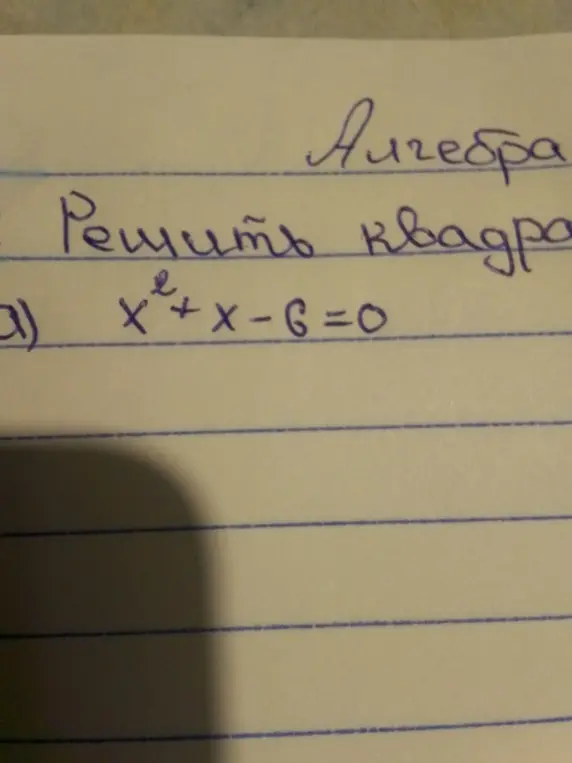 Алгебра
Решить квадра
а) x² + x - 6 = 0